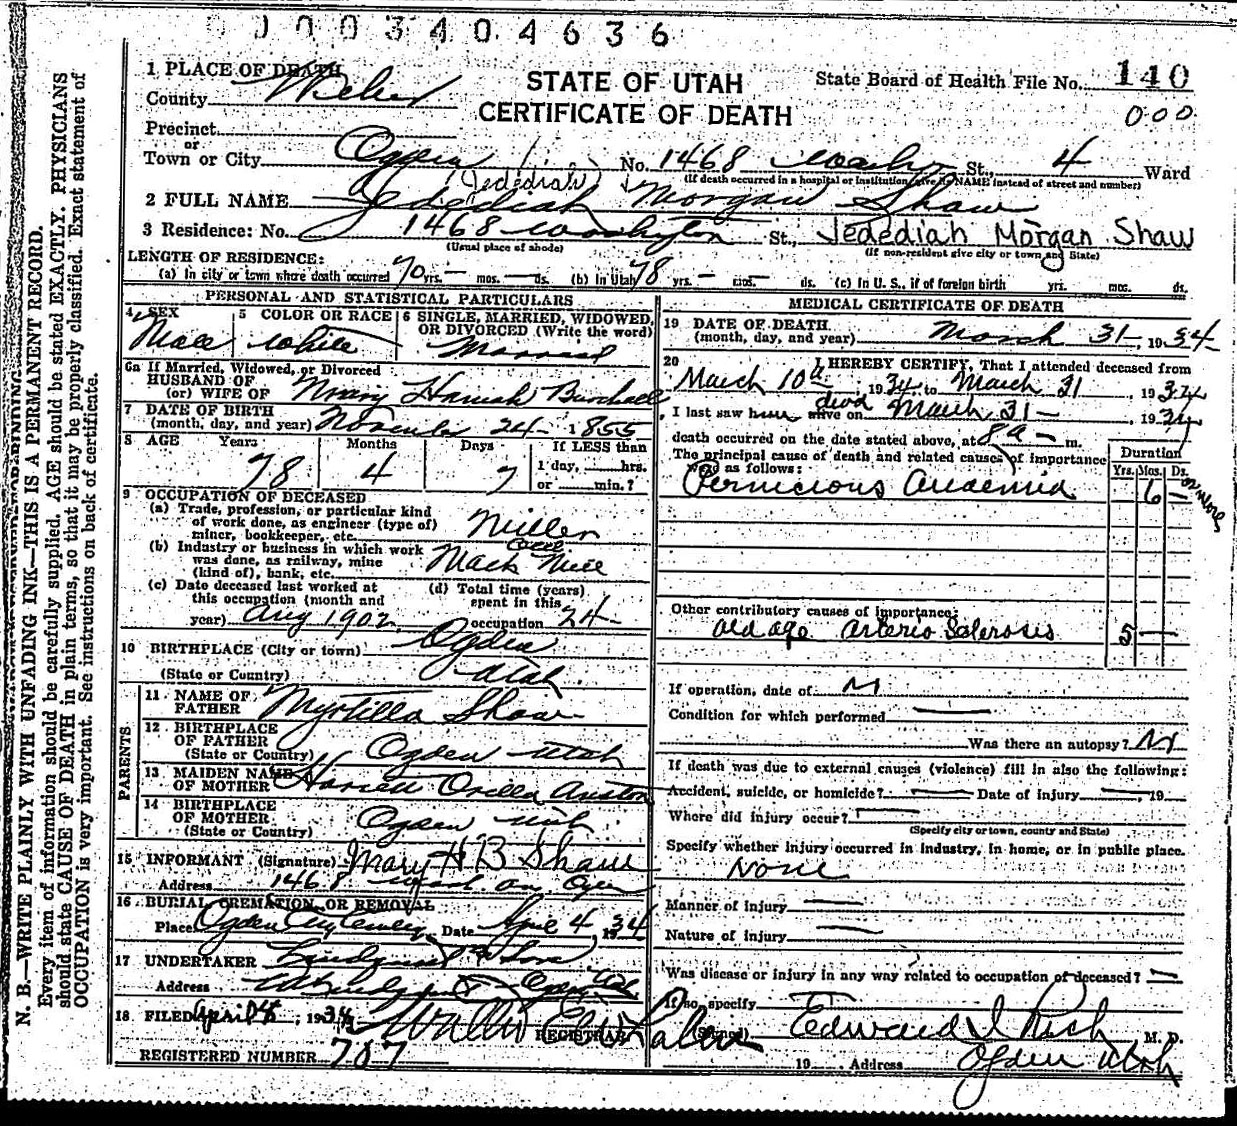 0003404636
1 PLACE OF DEATH
STATE OF UTAH
CERTIFICATE OF DEATH
State Board of Health File No. 140
000
County Weber
Precinct
or
Town or City Ogden No. 1468 Wash St., 4 Ward
(If death occurred in a hospital or institution, give its NAME instead of street and number)
(Jedediah)
2 FULL NAME Jedediah Morgan Shaw
3 Residence: No. 1468 Washington St., Jedediah Morgan Shaw
(Usual place of abode) (If non-resident give city or town and State)
LENGTH OF RESIDENCE:
(a) In city or town where death occurred 70 yrs. — mos. — ds. (b) In Utah 78 yrs. — mos. ds. (c) In U.S., if of foreign birth yrs. mos. ds.
PERSONAL AND STATISTICAL PARTICULARS
4 SEX Male
5 COLOR OR RACE White
6 SINGLE, MARRIED, WIDOWED, OR DIVORCED (Write the word) Married
6a If Married, Widowed, or Divorced
HUSBAND OF
(or) WIFE OF Mary Hannah
7 DATE OF BIRTH
(month, day, and year) November 24 - 1855
8 AGE Years Months Days If LESS than
78 4 7 1 day, hrs.
or min.?
9 OCCUPATION OF DECEASED
(a) Trade, profession, or particular kind
of work done, as engineer (type of)
miner, bookkeeper, etc. Miller
(b) Industry or business in which work
was done, as railway, mine
(kind of), bank, etc. Mack Mill
(c) Date deceased last worked at
this occupation (month and
year) Aug 1902
(d) Total time (years)
spent in this
occupation 24
10 BIRTHPLACE (City or town) Ogden
(State or Country) Utah
PARENTS
11 NAME OF
FATHER Myrtillo Shaw
12 BIRTHPLACE
OF FATHER
(State or Country) Ogden Utah
13 MAIDEN NAME
OF MOTHER Harriett Orilla Austin
14 BIRTHPLACE
OF MOTHER
(State or Country) Ogden, Utah
15 INFORMANT (Signature) Mary H B Shaw
Address 1468 Wash. Ogden
16 BURIAL, CREMATION, OR REMOVAL
Place Ogden City Cemetery Date April 4, 1934
17 UNDERTAKER Lindquist & Sons
Address Ogden
18 FILED April 4, 1934
REGISTRAR
REGISTERED NUMBER 707
MEDICAL CERTIFICATE OF DEATH
19 DATE OF DEATH
(month, day, and year) March 31 -, 1934
20 I HEREBY CERTIFY, That I attended deceased from
March 10th, 1934, to March 31, 1934
I last saw him alive on March 31 -, 1934
dead
death occurred on the date stated above, at 8 a - m.
The principal cause of death and related causes of importance
were as follows:
Duration
Yrs. Mos. Ds.
Pernicious Anaemia 6 — or more
Other contributory causes of importance:
Old age Arterio Sclerosis 5 —
If operation, date of
Condition for which performed —
Was there an autopsy?
If death was due to external causes (violence) fill in also the following:
Accident, suicide, or homicide? — Date of injury —, 19
Where did injury occur? —
(Specify city or town, county and State)
Specify whether injury occurred in industry, in home, or in public place.
None
Manner of injury —
Nature of injury —
Was disease or injury in any way related to occupation of deceased? —
If so, specify
(Signed) Edward I Rich M. D.
19 Address Ogden Utah
N. B.—WRITE PLAINLY WITH UNFADING INK—THIS IS A PERMANENT RECORD.
Every item of information should be carefully supplied. AGE should be stated EXACTLY. PHYSICIANS
should state CAUSE OF DEATH in plain terms, so that it may be properly classified. Exact statement of
OCCUPATION is very important. See instructions on back of certificate.